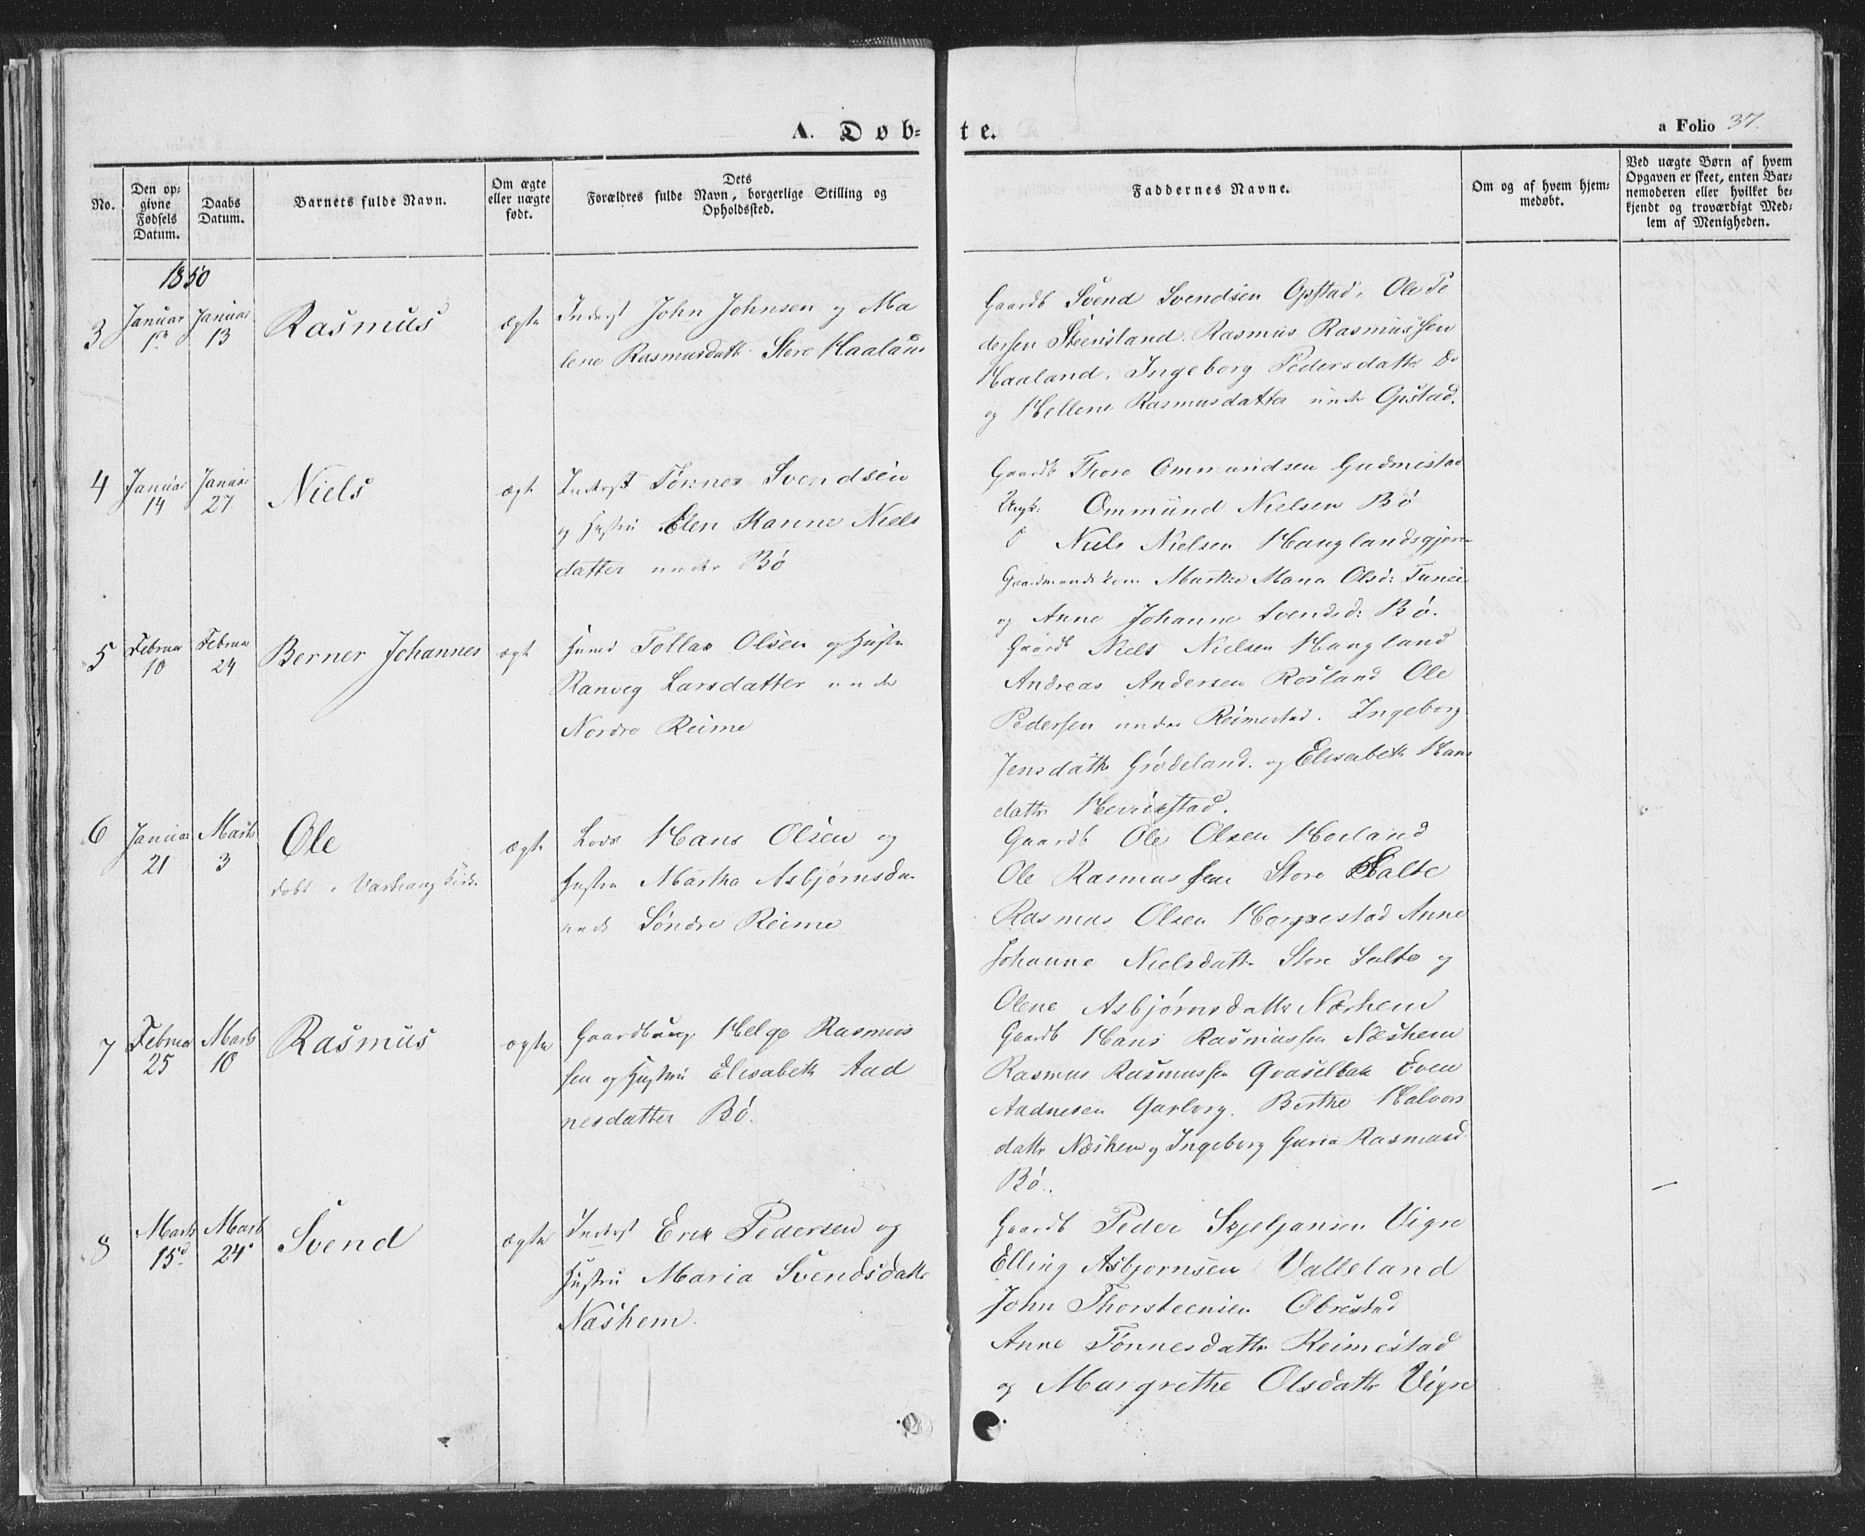 A. Døb-
te.
a Folio 37.
No.
Den op-
givne
Fødsels
Datum.
Daabs
Datum.
Barnets fulde Navn.
Om ægte
eller uægte
født.
Dets
Forældres fulde Navn, borgerlige Stilling og
Opholdssted.
Faddernes Navne.
Om og af hvem hjem-
medøbt.
Ved uægte Børn af hvem
Opgaven er skeet, enten Bar-
nemoderen eller hvilket be-
kjendt og troværdigt Med-
lem af Menigheden.
1850
3
Januar
1ste
Januar
13
Rasmus
ægte
Inderst John Johnsen og Ma
lene Rasmusdatt. Store Haaland
Gaardb Svend Svendsen Opstad, Ole Pe
dersen Steensland. Rasmus Rasmussen
Haaland. Ingeborg Pedersdattr Do
og Hellene Rasmusdatter under Opstad.
4
Januar
14
Januar
27
Niels
ægt
Inderst Tønnes Svendsen
og Hustru Elen Hanne Niels
datter under Bø
Gaardb Thore Ommundsen Gudmestad
Ungk: Ommund Nielsen Bø
Niels Nielsen Hauglandsgjerr
Gaardmands kone Marthe Maria Olsd: Tunei
og Anne Johanne Svendsd: Bø.
5
Februar
10
Februar
24
Berner Johannes
ægt
Huusmd Tollax Olsen og Hustr
Ranveg Larsdatter unde
Nordre Reime
Gaardb Niels Nielsen Haugland
Andreas Andersen Rosland Ole
Pedersen under Reimestad. Ingeborg
Jensdattr Grødeland. og Elisabeth Hans
dattr Herrikstad.
6
Januar
21
Marts
3
Ole
døbt i Varhaug Kirke.
ægte
Lods Hans Olsen og
Hustru Martha Asbjørnsda
unde Søndre Reime
Gaardb Ole Olsen Horland
Ole Rasmussen Store Salte
Rasmus Olsen Horpestad Anne
Johanne Nielsdattr Store Salte og
Olene Asbjørnsdattr Næshem
7
Februar
25
Marts
10
Rasmus
ægte
Gaardbrug Helge Rasmus
sen og Hustru Elisabeth Aad
nesdatter Bø.
Gaardb Hans Rasmussen Næshem
Rasmus Rasmussen Qvaselbak Even
Aadnesen Garborg. Berthe Halvors
dattr Næshem og Ingeborg Guria Rasmusd
Bø.
8
Marts
15d
Marts
24
Svend
ægte
Inderst Erik Pedersen og
Hustru Maria Svendsdattr
Næshem.
Gaardb Peder Skjeljansen Vigre
Elling Asbjørnsen Valleland
John Thorsteensen Obrestad
Anne Tønnesdattr Reimestad
og Margrethe Olsdattr Vigre